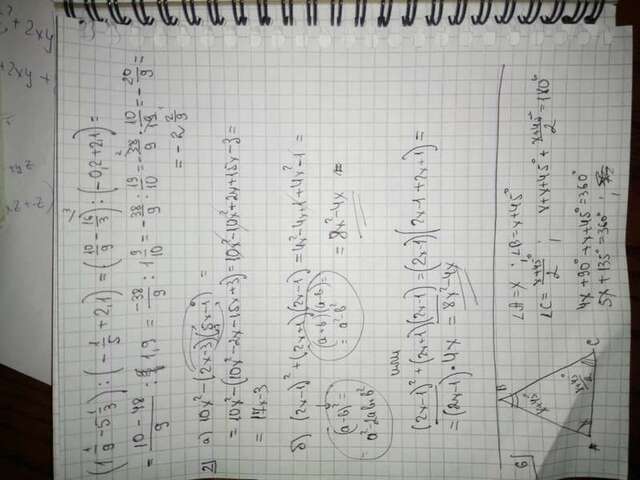 (1 1/9 - 5 1/3) : (-1/5 + 2,1) = (10/9 - 16/3) : (-0,2 + 2,1) =
= (10 - 48)/9 : 1,9 = -38/9 : 1 9/10 = -38/9 : 19/10 = -38/9 · 10/19 = -20/9 =
= -2 2/9
2] а) 10x² - (2x-3)(5x-1) =
= 10x² - (10x² - 2x - 15x + 3) = 10x² - 10x² + 2x + 15x - 3 =
= 17x - 3
б) (2x-1)² + (2x+1)(2x-1) = 4x² - 4x + 1 + 4x² - 1 =
(a-b)² =
= a² - 2ab + b²
(a+b)(a-b) =
= a² - b²
= 8x² - 4x =
или
(2x-1)² + (2x+1)(2x-1) = (2x-1)(2x-1+2x+1) =
= (2x-1) · 4x = 8x² - 4x
6]
B
x+45°
x
(x+45°)/2
A
C
∠A = x ; ∠B = x+45°
∠C = (x+45°)/2 ; x + x+45° + (x+45°)/2 = 180°
4x + 90° + x + 45° = 360°
5x + 135° = 360° ;